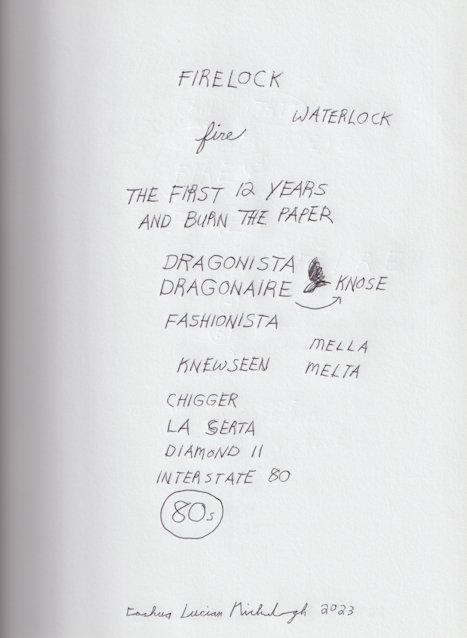 FIRELOCK
WATERLOCK
fire
THE FIRST 12 YEARS
AND BURN THE PAPER
DRAGONISTA
DRAGONAIRE
KNOSE
FASHIONISTA
MELLA
KNEWSEEN
MELTA
CHIGGER
LA SERTA
DIAMOND 11
INTERSTATE 80
80s
Lucian 2023